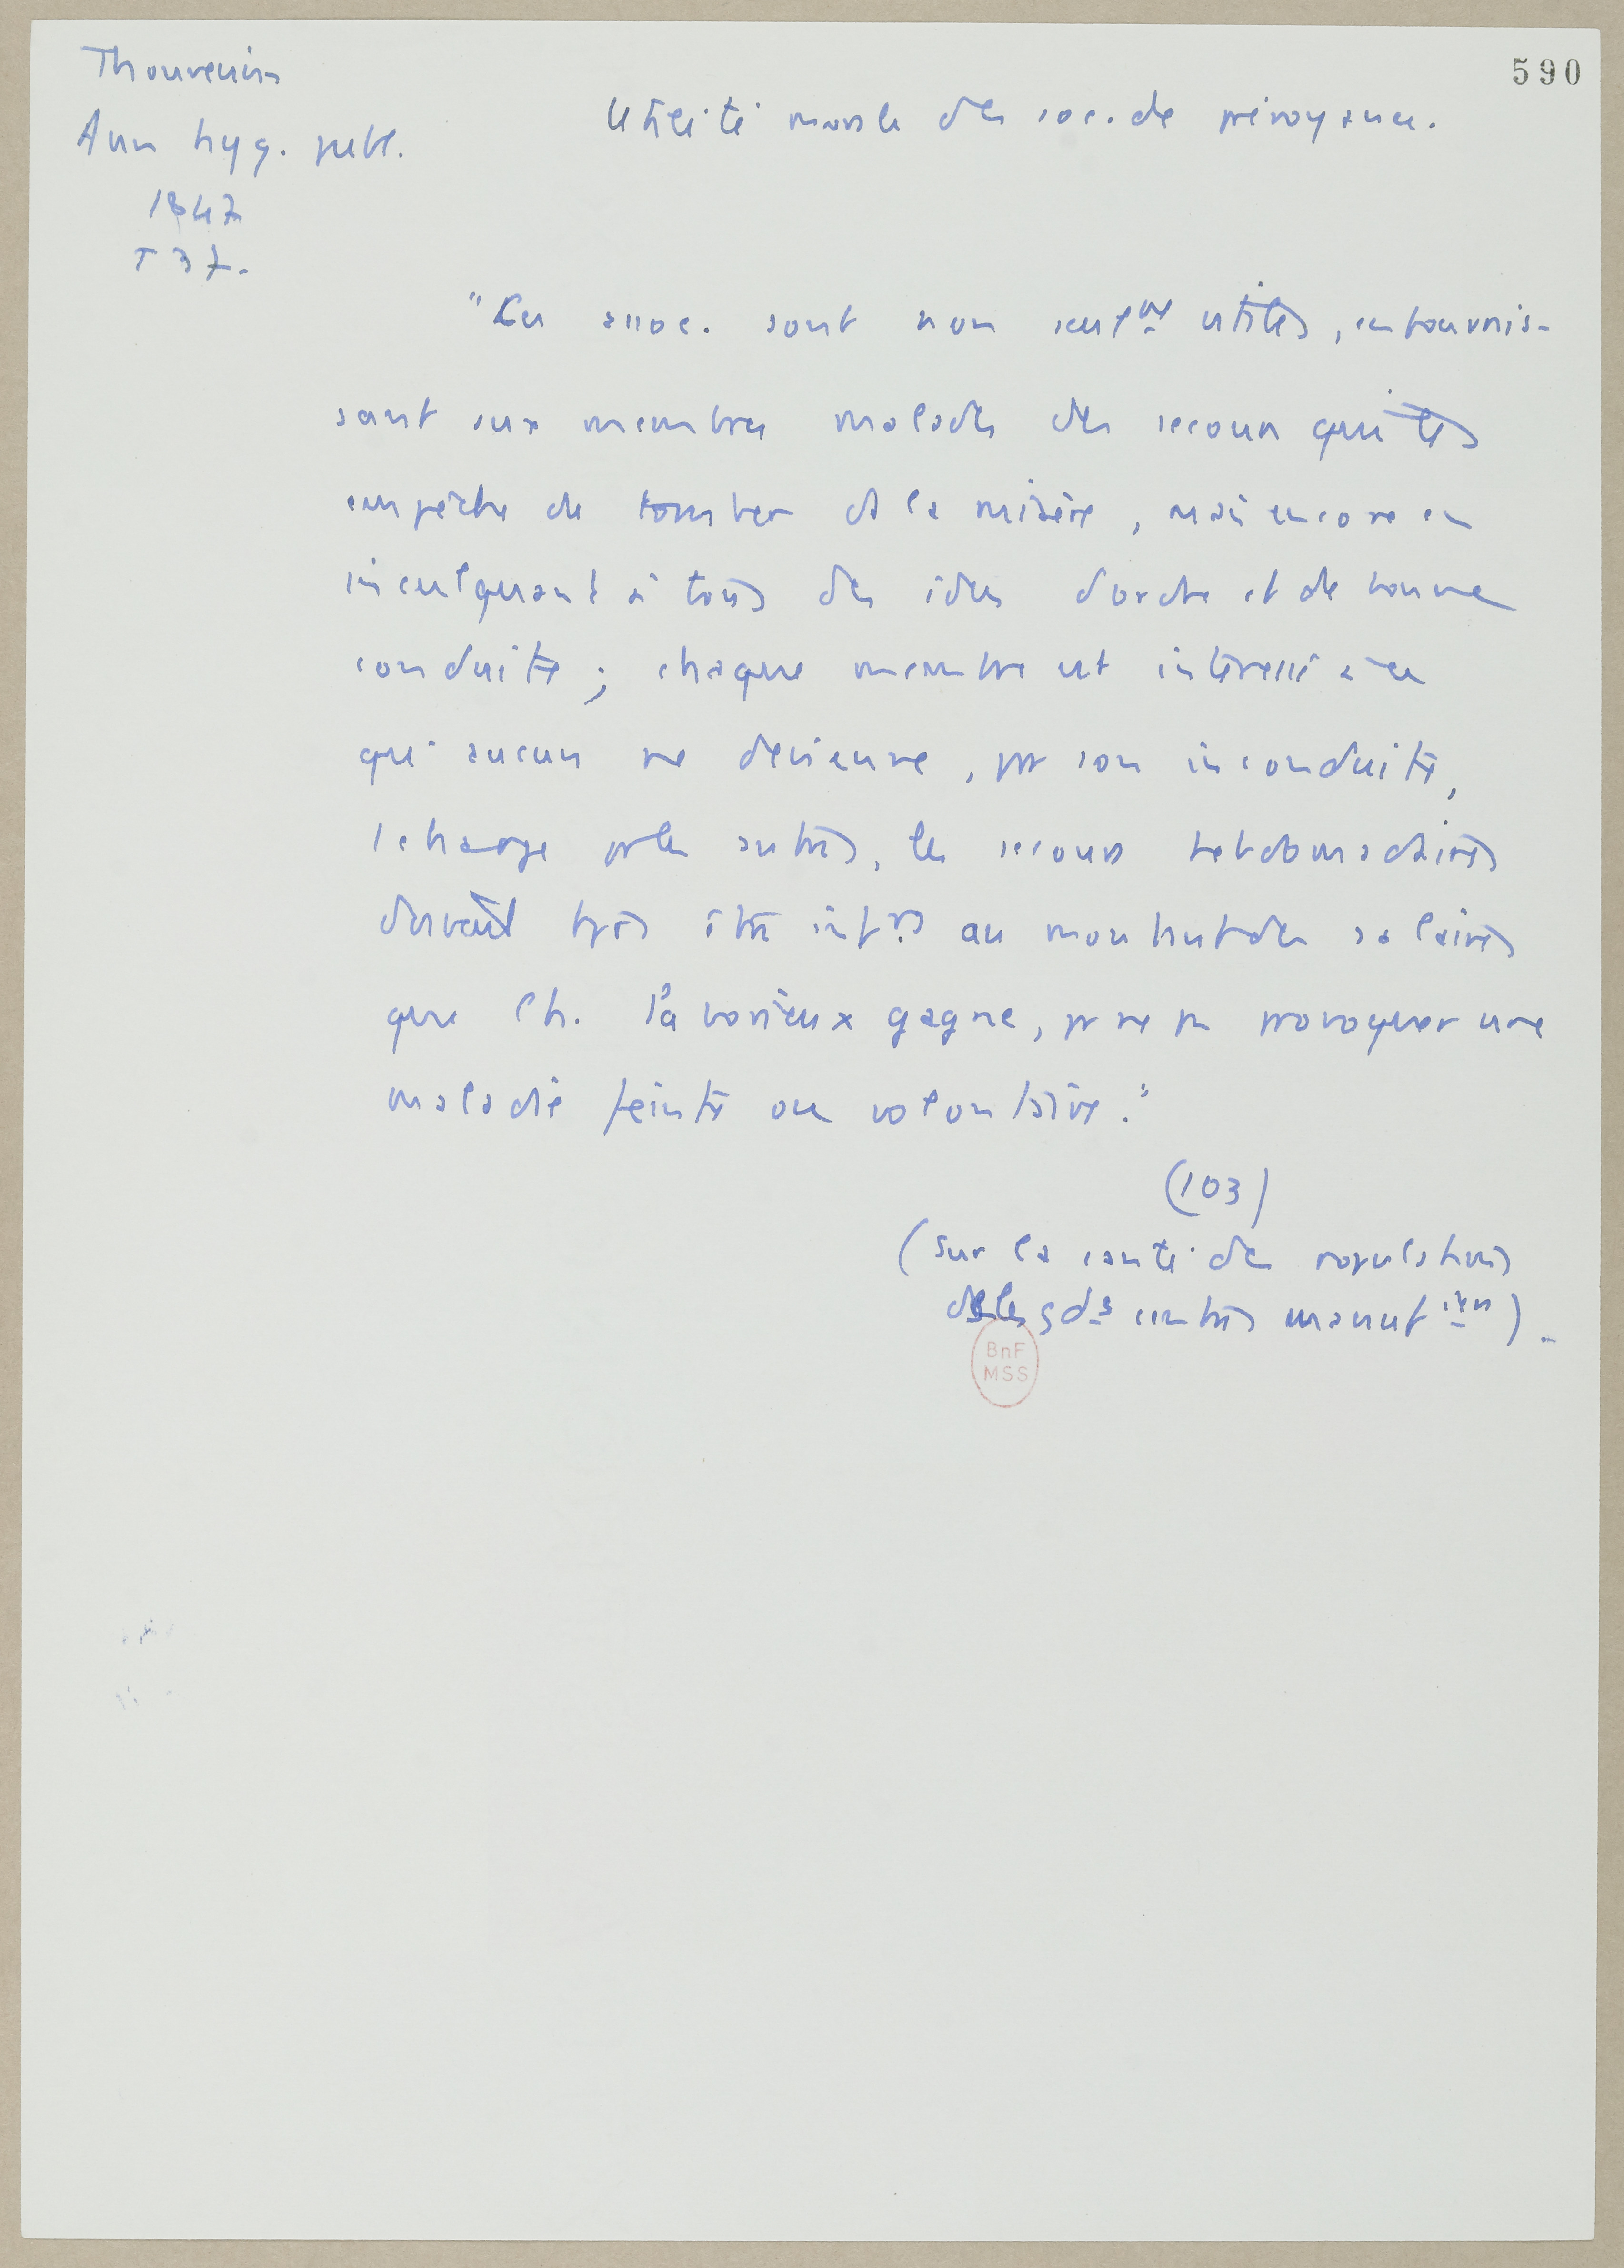 590
Thouvenin
Ann hyg. publ.
1847
T 37.
Utilité morale des soc. de prévoyance.
"Ces assoc. sont non seul^mt utiles, en fournis-
sant aux membres malades des secours qui les
empêche de tomber ds la misère, mais encore en
inculquant à tous des idées d'ordre et de bonne
conduite ; chaque membre est intéressé à ce
qu'aucun ne devienne, par son inconduite,
1 charge pr les autres, les secours hebdomadaires
devant tjrs être inf^rs au montant des salaires
que l'h. laborieux gagne, pr ne pas provoquer une
maladie feinte ou volontaire."
(103)
(Sur la santé des populations
ds les gds centres manuf^iers).
BnF
MSS